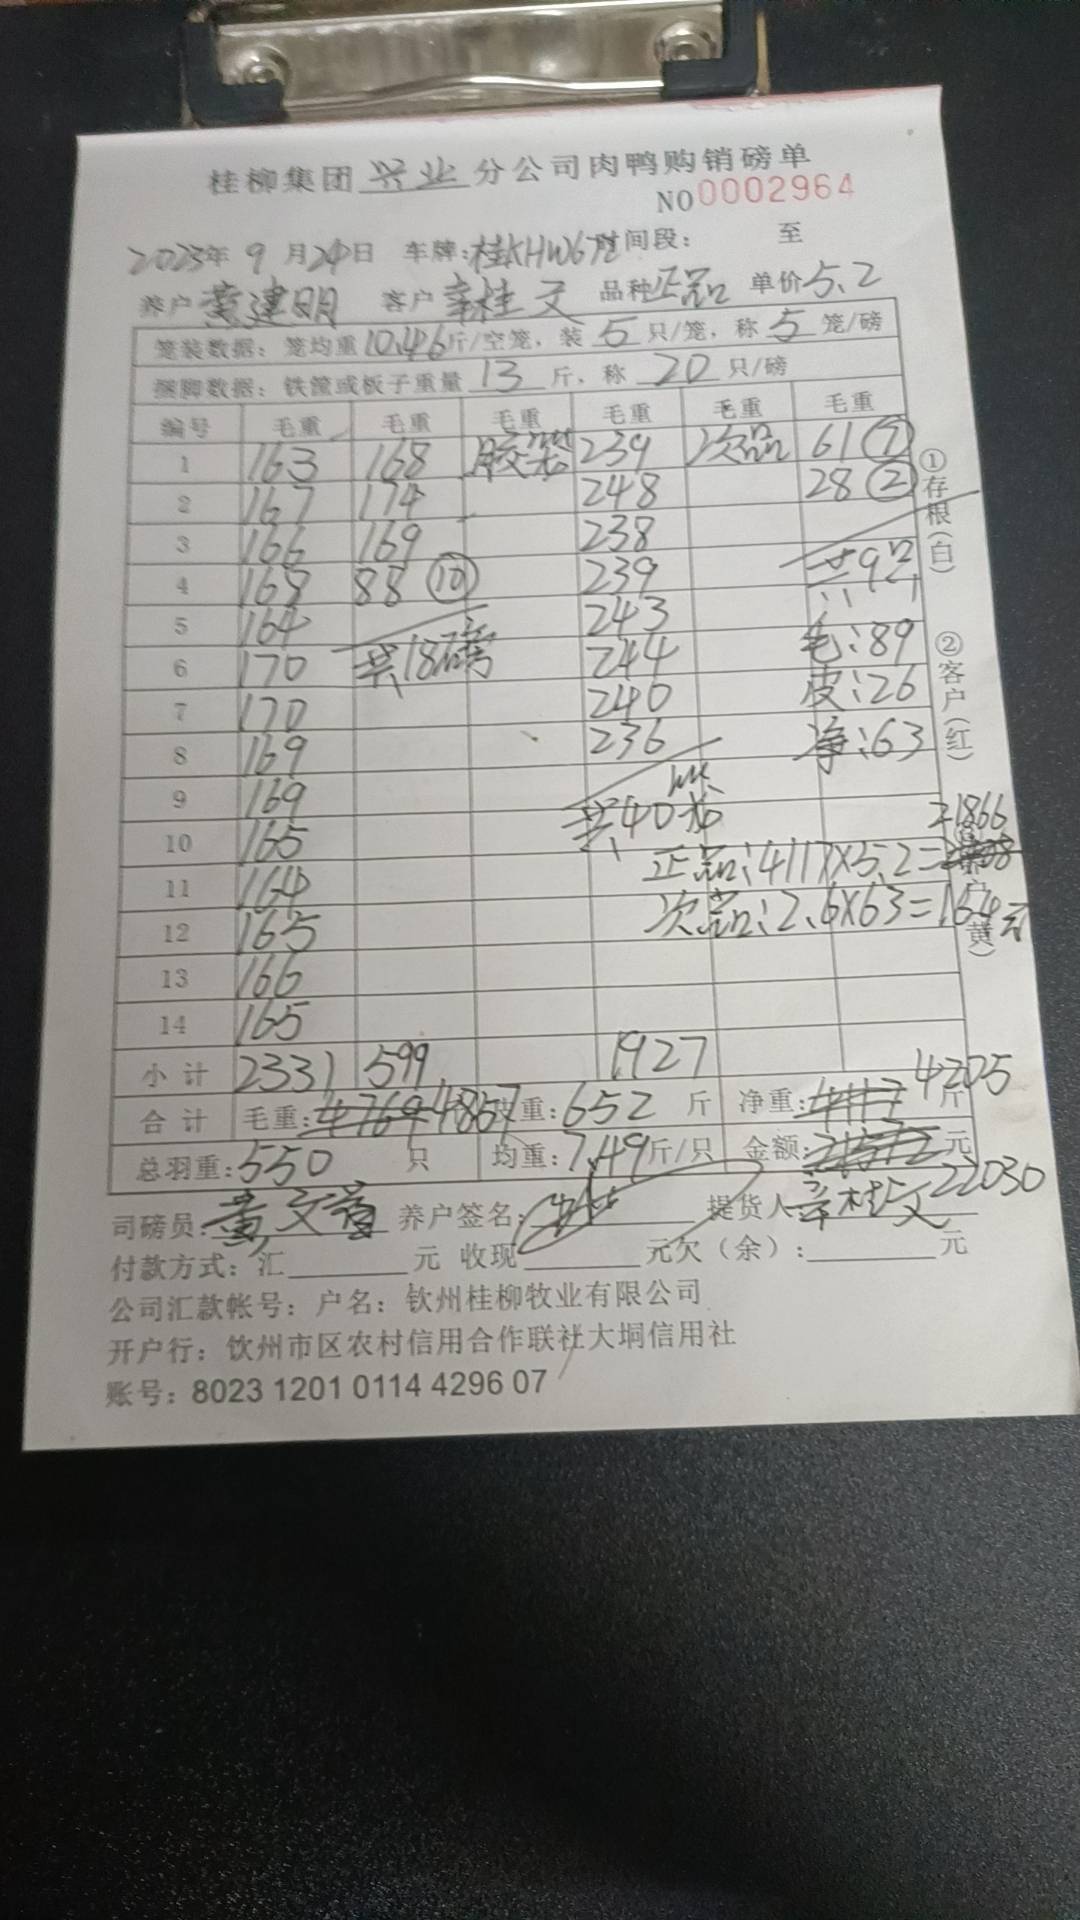 桂柳集团兴业分公司肉鸭购销磅单
NO0002964
2023年9月24日 车牌:桂KHW67 时间段: 至
养户 黄建明 客户 辛桂文 品种 正品 单价 5.2
笼装数据: 笼均重10.46斤/空笼, 装5只/笼, 称5笼/磅
捆脚数据: 铁篮或板子重量13斤, 称20只/磅
编号 毛重 毛重 毛重 毛重 毛重 毛重
1 163 168 胶笼 239 次品 61⑦
2 167 174 248 28②
3 166 169 238
4 168 88⑩ 239 共9只
5 164 243
6 170 共18磅 244 毛:89
7 170 240 皮:26
8 169 236 净:63
9 169
10 165 共40笼 21866
11 164 正品:4117×5.2=
12 165 次品:2.6×63=164元
13 166
14 165
小计 2331 599 1927
合计 毛重:4764 4857 皮重:652斤 净重:4117 4205斤
总羽重:550只 均重:7.49斤/只 金额: 元 22030
司磅员: 黄文 养户签名: 提货人: 辛桂文
付款方式: 汇 元 收现 元欠(余): 元
公司汇款帐号: 户名: 钦州桂柳牧业有限公司
开户行: 饮州市区农村信用合作联社大垌信用社
账号: 8023 1201 0114 4296 07
①存根(白) ②客户(红) 户(黄)